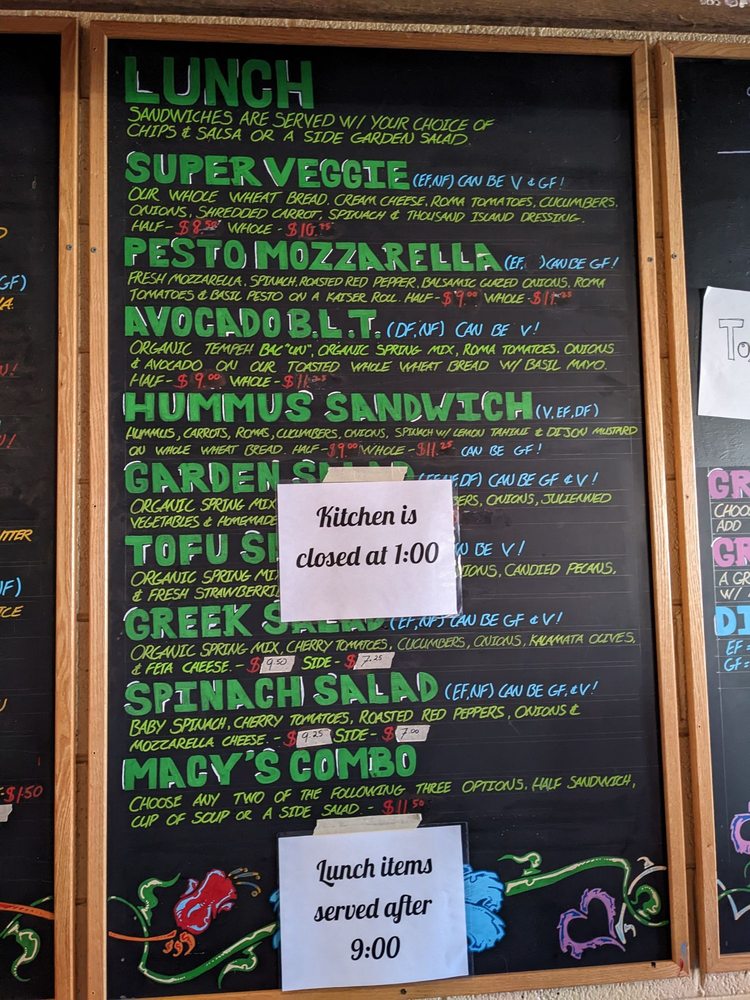 LUNCH
SANDWICHES ARE SERVED W/ YOUR CHOICE OF
CHIPS & SALSA OR A SIDE GARDEN SALAD.
SUPER VEGGIE (EF,NF) CAN BE V & GF!
OUR WHOLE WHEAT BREAD, CREAM CHEESE, ROMA TOMATOES, CUCUMBERS,
ONIONS, SHREDDED CARROT, SPINACH & THOUSAND ISLAND DRESSING.
HALF - $8.50 WHOLE - $10.75
PESTO MOZZARELLA (EF, ) CAN BE GF!
FRESH MOZZARELLA, SPINACH, ROASTED RED PEPPER, BALSAMIC GLAZED ONIONS, ROMA
TOMATOES & BASIL PESTO ON A KAISER ROLL. HALF - $9.00 WHOLE - $11.25
AVOCADO B.L.T. (DF,NF) CAN BE V!
ORGANIC TEMPEH BAC"UN", ORGANIC SPRING MIX, ROMA TOMATOES, ONIONS
& AVOCADO ON OUR TOASTED WHOLE WHEAT BREAD W/ BASIL MAYO.
HALF - $9.00 WHOLE - $11.25
HUMMUS SANDWICH (V,EF,DF)
HUMMUS, CARROTS, ROMAS, CUCUMBERS, ONIONS, SPINACH W/ LEMON TAHINI & DIJON MUSTARD
ON WHOLE WHEAT BREAD. HALF - $9.00 WHOLE - $11.25 CAN BE GF!
GARDEN SALAD CAN BE GF & V!
ORGANIC SPRING MIX ONIONS, JULIENNED
VEGETABLES & HOMEMADE
TOFU BE V!
ORGANIC SPRING MIX CANDIED PECANS,
& FRESH
Kitchen is
closed at 1:00
GREEK SALAD (EF,NF) CAN BE GF & V!
ORGANIC SPRING MIX, CHERRY TOMATOES, CUCUMBERS, ONIONS, KALAMATA OLIVES,
& FETA CHEESE. - $9.50 SIDE - $7.25
SPINACH SALAD (EF,NF) CAN BE GF & V!
BABY SPINACH, CHERRY TOMATOES, ROASTED RED PEPPERS, ONIONS &
MOZZARELLA CHEESE. - $9.25 SIDE - $7.00
MACY'S COMBO
CHOOSE ANY TWO OF THE FOLLOWING THREE OPTIONS. HALF SANDWICH,
CUP OF SOUP OR A SIDE SALAD - $11.50
Lunch items
served after
9:00
$1.50
GF)
NF)
CHOO
ADD
A GR
W/
EF =
GF =